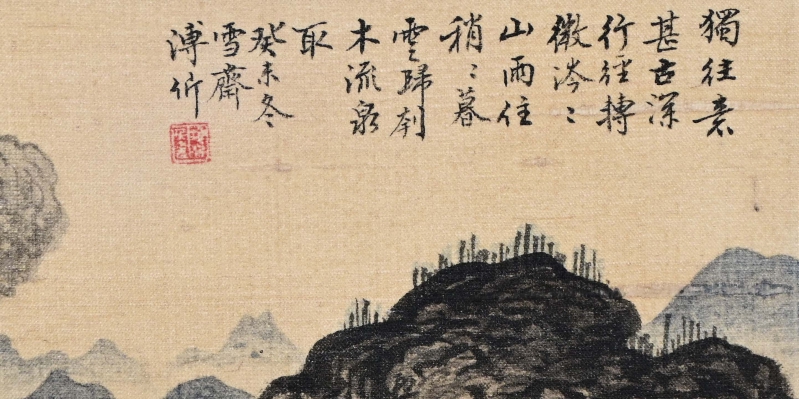 獨往意
甚古深
行徑轉
微涔〻
山雨住
稍〻暮
雲歸刳
木流泉
取
癸未冬
雪齋
溥伒